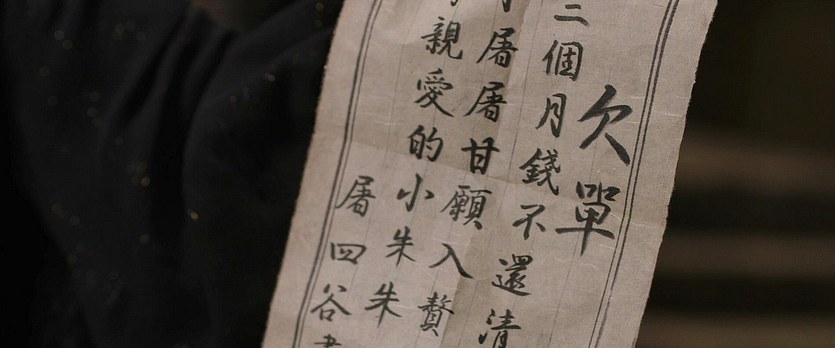 欠單
三個月錢不還清
屠屠甘願入贅
親愛的小朱朱
屠四谷